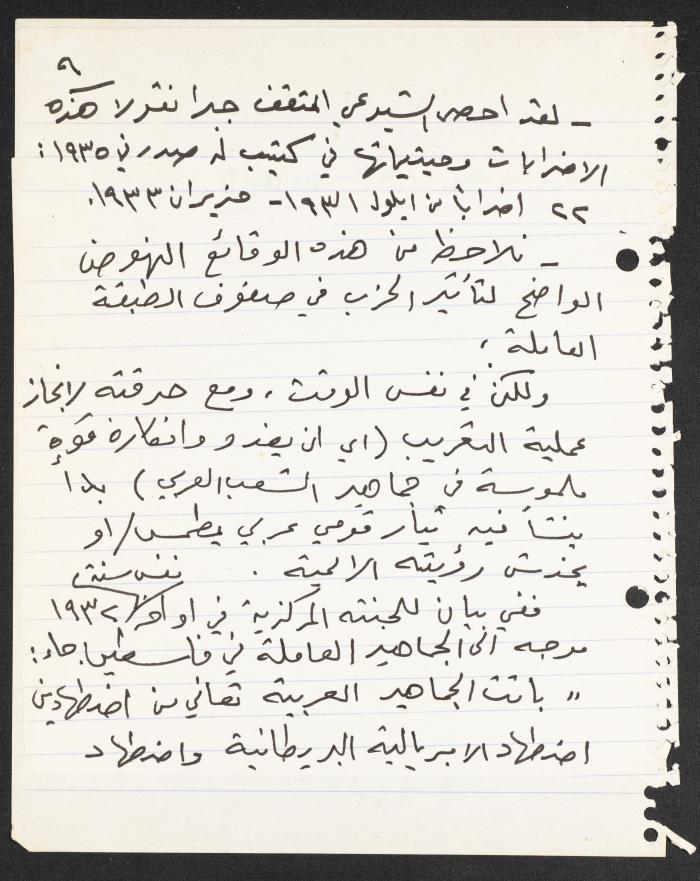 ٩
ـ لقد احصى الشيوعي المثقف جدا نقولا هذه
الاضرابات وحيثياتها في كتيب له صدر في ١٩٣٥:
٢٢ اضراباً من ايلول ١٩٣١ - حزيران ١٩٣٣.
ـ نلاحظ من هذه الوقائع النهوض
الواضح لتأثير الحزب في صفوف الطبقة
العاملة ،
ولكن في نفس الوقت ، ومع لانجاز
عملية التعريب (اي ان يغدو وافكاره قوة
ملموسة في جماهير الشعب العربي) بدأ
ينشأ فيه تيار قومي عربي يطمس/او
يخدش رؤيته الاممية .
نفس سنة
ففي بيان للجنته المركزية في اواخر ١٩٣٢
موجه الى الجماهير العاملة في فلسطين جاء:
" باتت الجماهير العربية تعاني من اضطهادين
اضطهاد الامبريالية البريطانية واضطهاد